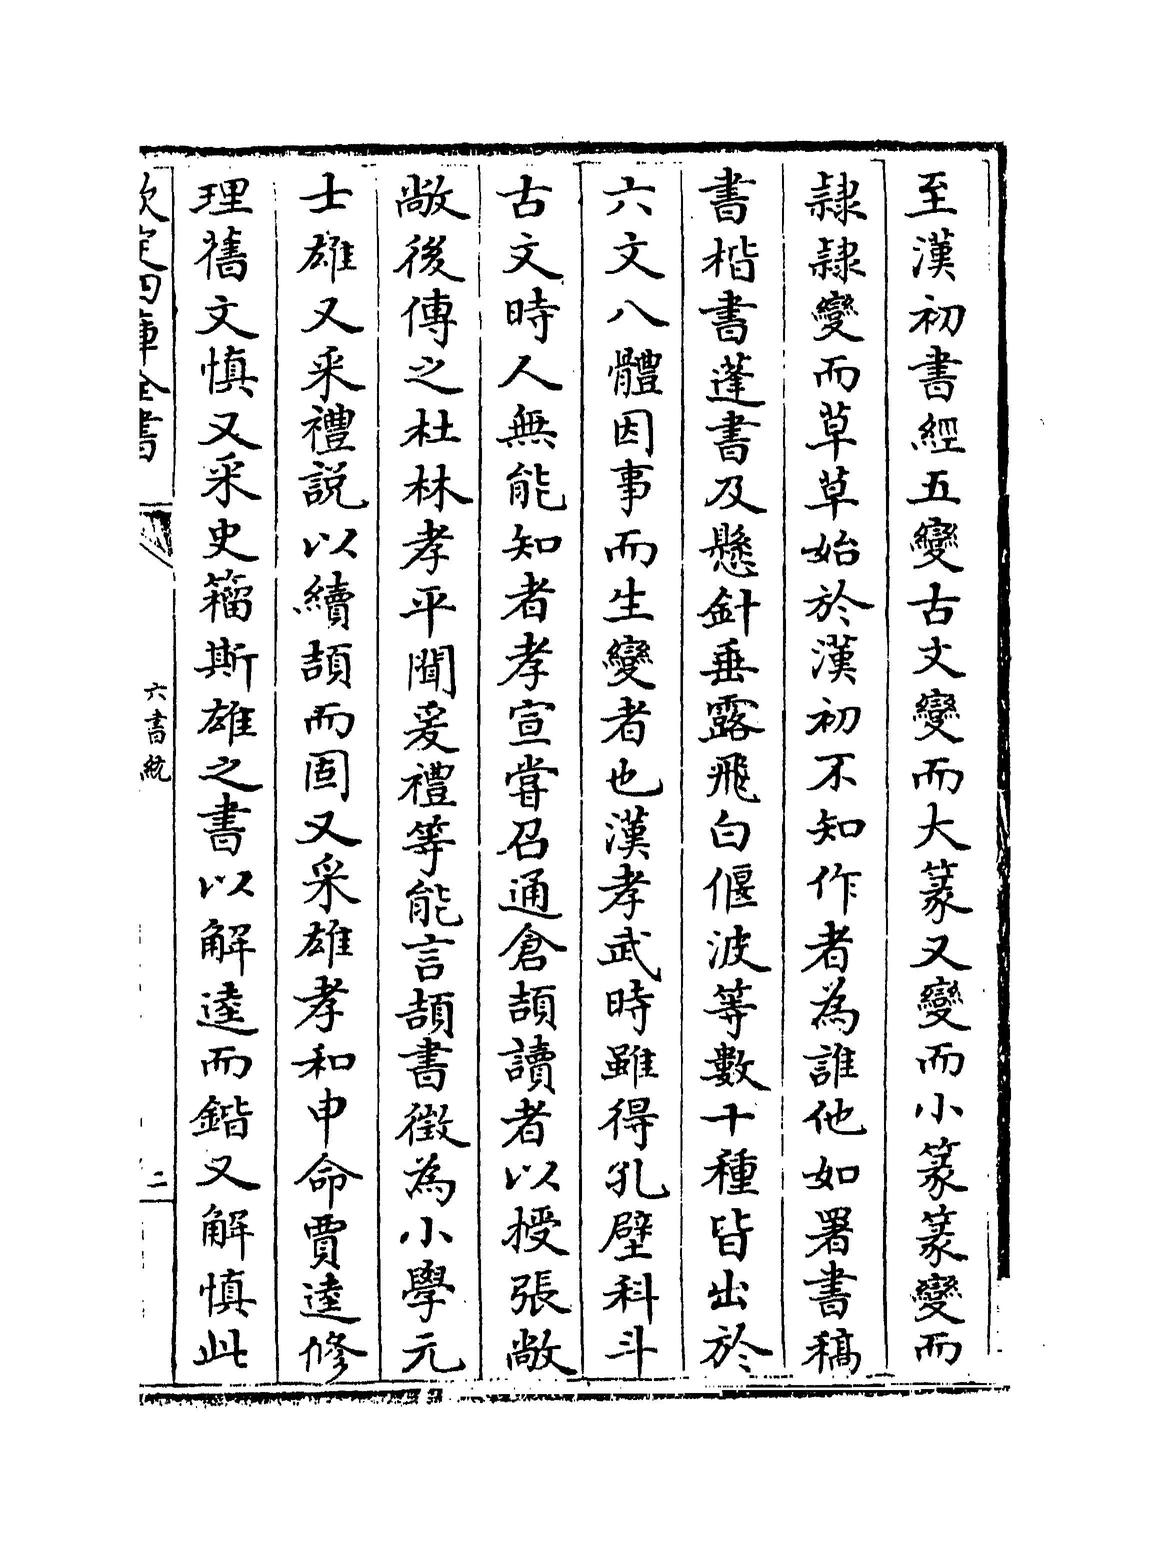 至漢初書經五變古文變而大篆又變而小篆篆變而
隷隷變而草草始於漢初不知作者為誰他如署書稿
書楷書蓬書及懸針垂露飛白偃波等數十種皆出於
六文八體因事而生變者也漢孝武時雖得孔壁科斗
古文時人無能知者孝宣嘗召通倉頡讀者以授張敞
敞後傳之杜林孝平聞爰禮等能言頡書徵為小學元
士雄又采禮說以續頡而固又采雄孝和申命賈逵修
理舊文慎又采史籀斯雄之書以解逵而鍇又解慎此
欽定四庫全書
六書統
二